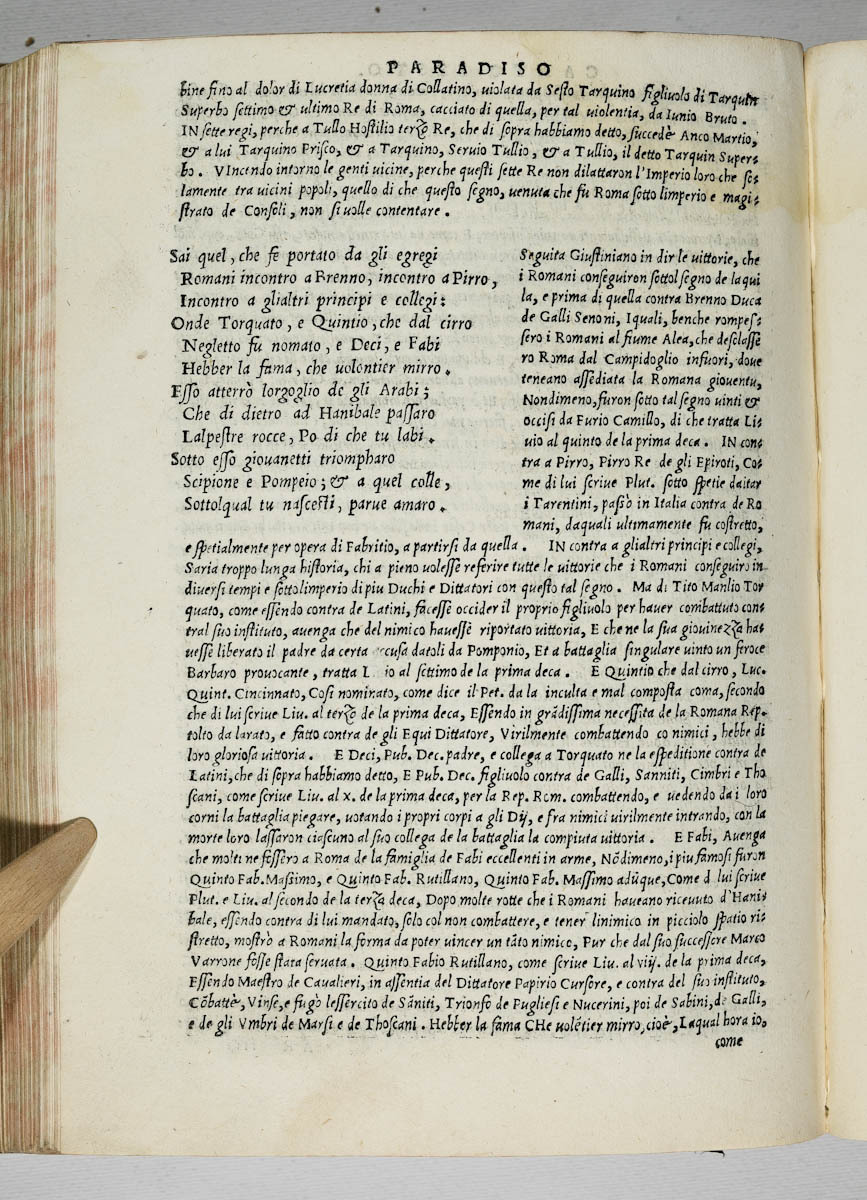 PARADISO
bine fino al dolor di Lucretia donna di Collatino, uiolata da Sesto Tarquino figliuolo di Tarquin
Superbo settimo & ultimo Re di Roma, cacciato di quella, per tal uiolentia, da Iunio Bruto.
IN sette regi, perche a Tullo Hostilio terzo Re, che di sopra habbiamo detto, succedè Anco Martio,
& a lui Tarquino Prisco, & a Tarquino, Seruio Tullio, & a Tullio, il detto Tarquin Super-
bo. VIncendo intorno le genti uicine, perche questi sette Re non dilattaron l'Imperio loro che so-
lamente tra uicini popoli, quello di che questo segno, uenuta che fu Roma sotto limperio e magi-
strato de Consoli, non si uolle contentare.
Sai quel, che fe portato da gli egregi
Romani incontro a Brenno, incontro a Pirro,
Incontro a glialtri principi e collegi:
Onde Torquato, e Quintio, che dal cirro
Negletto fu nomato, e Deci, e Fabi
Hebber la fama, che uolontier mirro.
Esso atterrò lorgoglio de gli Arabi;
Che di dietro ad Hanibale passaro
Lalpestre rocce, Po di che tu labi.
Sotto esso giouanetti triompharo
Scipione e Pompeio; & a quel colle,
Sottolqual tu nascesti, parue amaro.
Seguita Giustiniano in dir le uittorie, che
i Romani conseguiron sottol segno de laqui
la, e prima di quella contra Brenno Duca
de Galli Senoni, Iquali, benche rompes-
sero i Romani al fiume Alea, che desolasse
ro Roma dal Campidoglio infuori, doue
teneano assediata la Romana giouentu,
Nondimeno, furon sotto tal segno uinti &
occisi da Furio Camillo, di che tratta Li-
uio al quinto de la prima deca. IN con-
tra a Pirro, Pirro Re de gli Epiroti, Co-
me di lui scriue Plut. sotto spetie daitar
i Tarentini, passò in Italia contra de Ro
mani, daquali ultimamente fu costretto,
e spetialmente per opera di Fabritio, a partirsi da quella. IN contra a glialtri principi e collegi,
Saria troppo lunga historia, chi a pieno uolesse referire tutte le uittorie che i Romani conseguiro in
diuersi tempi e sotto limperio di piu Duchi e Dittatori con questo tal segno. Ma di Tito Manlio Tor
quato, come essendo contra de Latini, facesse occider il proprio figliuolo per hauer combattuto con-
tral suo instituto, auenga che del nimico hauesse riportato uittoria, E che ne la sua giouinezza ha-
uesse liberato il padre da certa accusa datoli da Pomponio, Et a battaglia singulare uinto un feroce
Barbaro prouocante, tratta L io al settimo de la prima deca. E Quintio che dal cirro, Luc.
Quint. Cincinnato, Cosi nominato, come dice il Pet. da la inculta e mal composta coma, secondo
che di lui scriue Liu. al terzo de la prima deca, Essendo in grãdissima necessita de la Romana Rep.
tolto da larato, e fatto contra de gli Equi Dittatore, Virilmente combattendo co nimici, hebbe di
loro gloriosa uittoria. E Deci, Pub. Dec. padre, e collega a Torquato ne la espeditione contra de
Latini, che di sopra habbiamo detto, E Pub. Dec. figliuolo contra de Galli, Sanniti, Cimbri e Tho
scani, come scriue Liu. al x. de la prima deca, per la Rep. Rom. combattendo, e uedendo da i loro
corni la battaglia piegare, uotando i propri corpi a gli Dij, e fra nimici uirilmente intrando, con la
morte loro lassaron ciascuno al suo collega de la battaglia la compiuta uittoria. E Fabi, Auenga
che molti ne fossero a Roma de la famiglia de Fabi eccellenti in arme, Nõdimeno, i piu famosi furon
Quinto Fab. Massimo, e Quinto Fab. Rutillano, Quinto Fab. Massimo adũque, Come d lui scriue
Plut. e Liu. al secondo de la terza deca, Dopo molte rotte che i Romani haueano riceuuto d'Hani-
bale, essendo contra di lui mandato, solo col non combattere, e tener linimico in picciolo spatio ri-
stretto, mostrò a Romani la forma da poter uincer un tãto nimico, Pur che dal suo successore Marco
Varrone fosse stata seruata. Quinto Fabio Rutillano, come scriue Liu. al viij. de la prima deca,
Essendo Maestro de Caualieri, in assentia del Dittatore Papirio Cursore, e contra del suo instituto,
Cõbattè, Vinse, e fugò lessercito de Sãniti, Trionfò de Pugliesi e Nucerini, poi de Sabini, de Galli,
e de gli Vmbri de Marsi e de Thoscani. Hebber la fama CHe uolẽtier mirro, cioè, Laqual hora io,
come